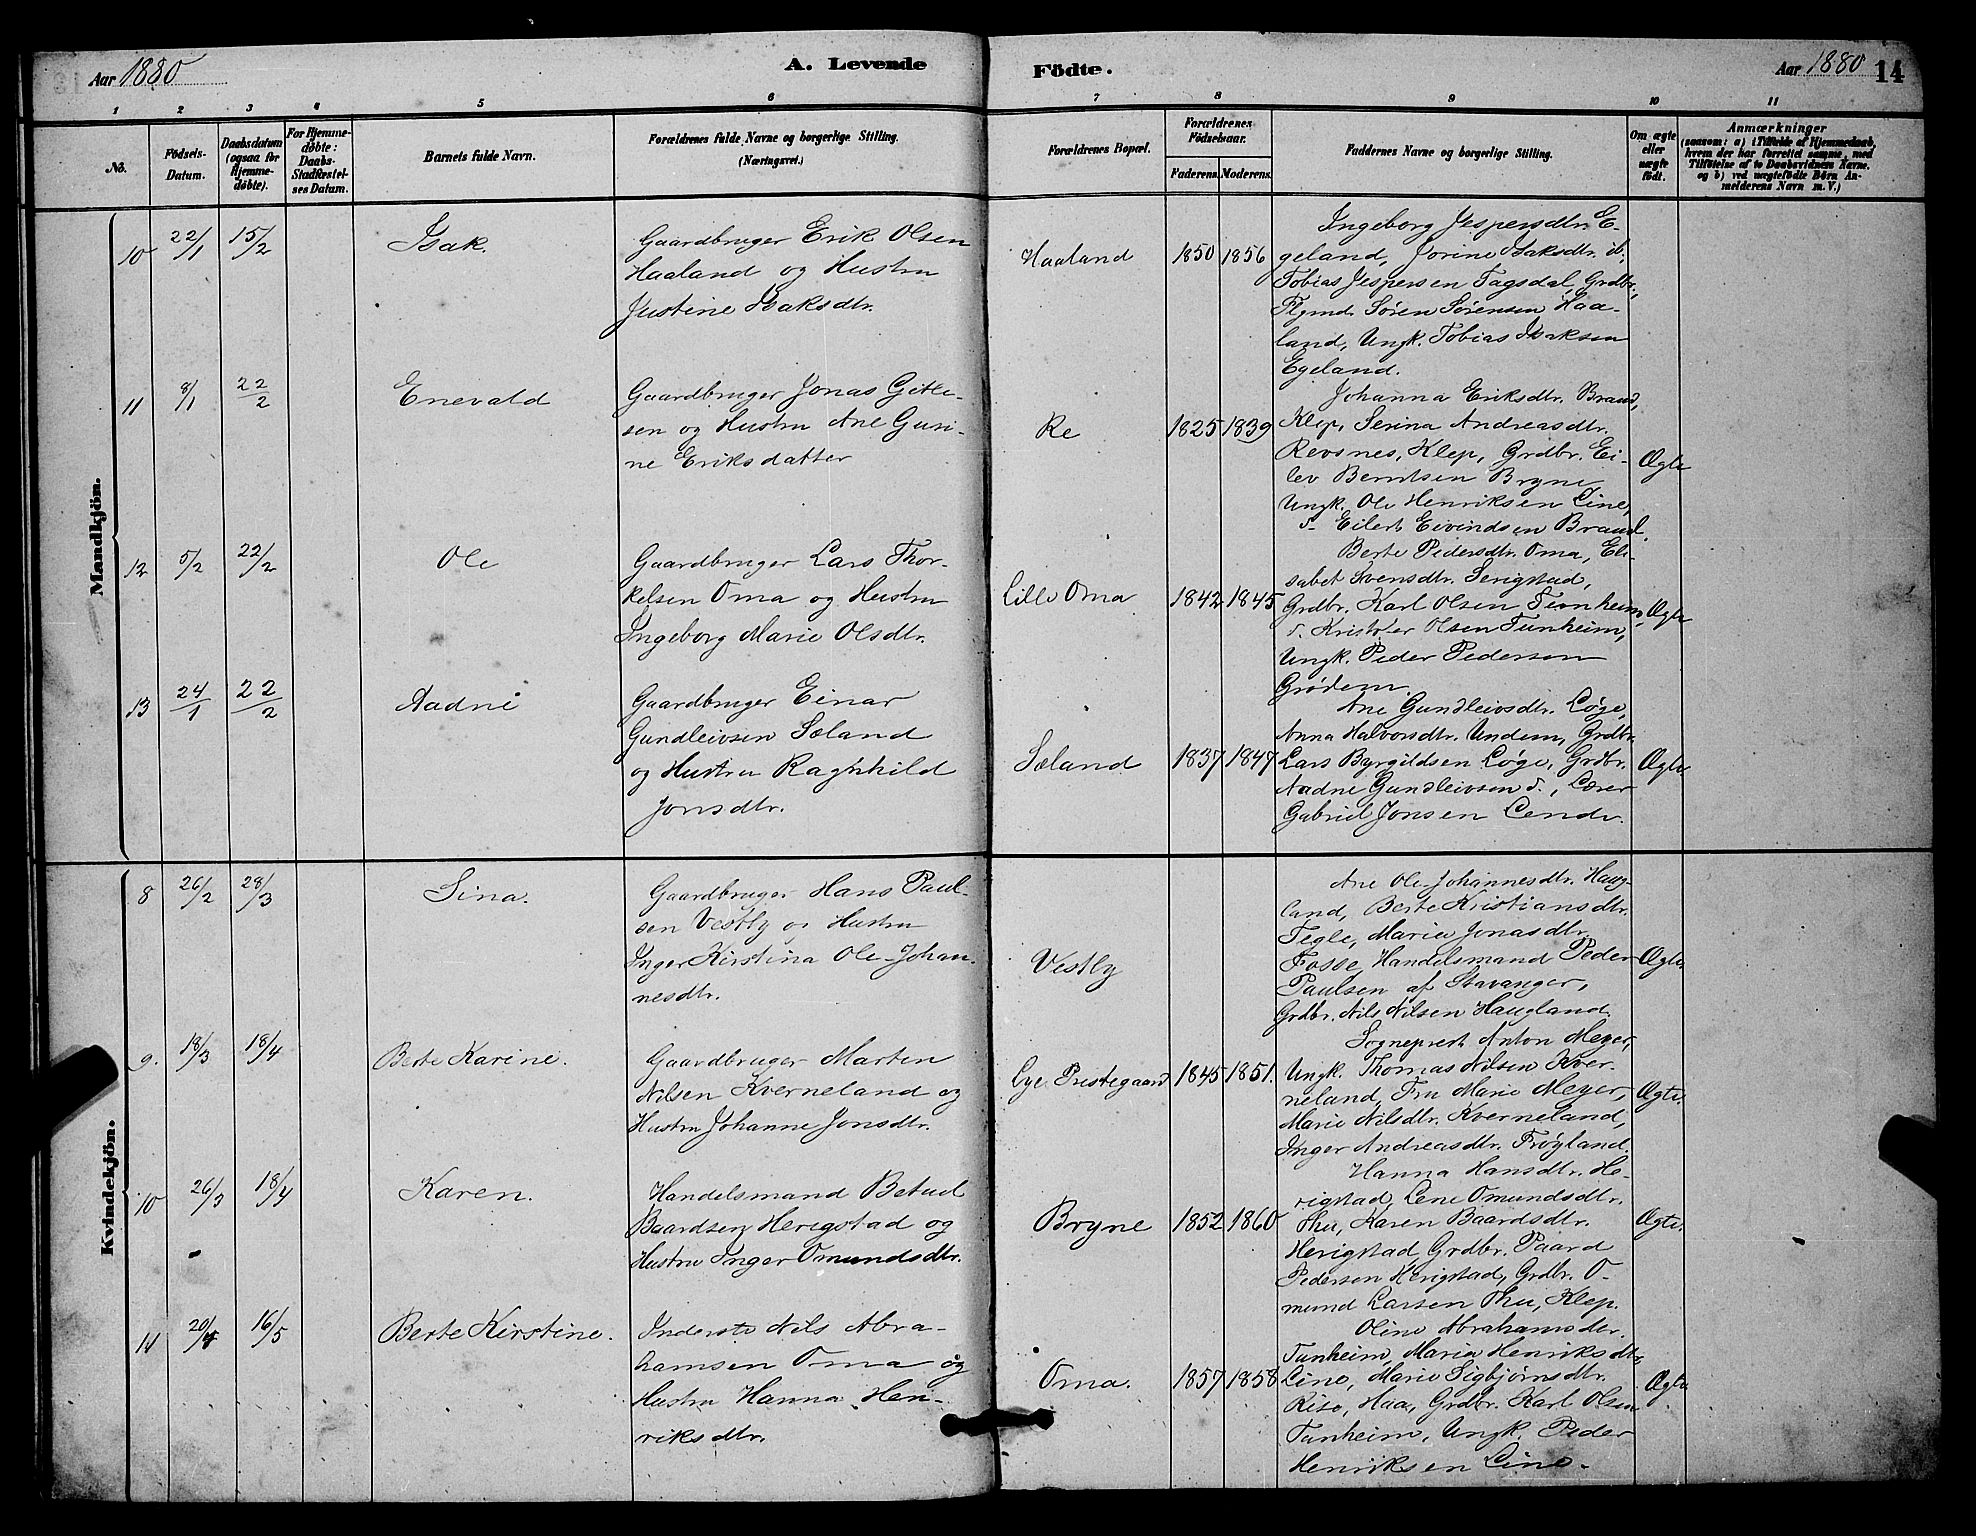 Aar 1880
A. Levende
Födte.
Aar 1880
14
1 2 3 4 5 6 7 8 9 10 11
No.
Födsels-
Datum.
Daabsdatum
(ogsaa for
Hjemme-
døbte).
For Hjemme-
døbte:
Daabs-
Stadfæstel-
ses Datum.
Barnets fulde Navn.
Forældrenes fulde Navne og borgerlige Stilling.
(Næringsvei.)
Forældrenes Bopæl.
Forældrenes
Födselsaar.
Faderens. Moderens.
Faddernes Navne og borgerlige Stilling.
Om ægte
eller
uægte
födt.
Anmærkninger
(saasom: a) i Tilfælde af Hjemmedaab,
hvem der har forrettet samme, med
Tilföielse af to Daabsvidners Navne.
og b) ved uægtefödte Börn An-
melderens Navn m. V.)
Mandkjön.
10 22/1 15/2 Isak.
Gaardbruger Erik Olsen
Haaland og Hustru
Justine Isaksdtr.
Haaland 1850 1856
Ingeborg Jespersdtr. E-
geland, Jorine Isaksdtr. d.,
Tobias Jespersen Tagsdal, Grdbr.,
Flgmd. Søren Sørensen Haa-
land, Ungk. Tobias Isaksen
Egeland.
11 8/1 22/2 Enevald
Gaardbruger Jonas Gitle-
sen og Hustru Ane Guri-
ne Eriksdatter
Re 1825 1839
Johanna Eriksdtr. Braud,
Klep, Serina Andreasdtr.
Revsnes, Klep, Grdbr. Ei-
lev Berntsen Bryne
Ungk. Ole Henriksen Line,
d. Eilert Eivindsen Braud.
Ægte
12 5/2 22/2 Ole
Gaardbruger Lars Thor-
kelsen Oma og Hustru
Ingeborg Marie Olsdtr.
Lille Oma 1842 1845
Berte Pedersdtr. Oma, Eli-
sabet Svensdtr. Serigstad,
Grdbr. Karl Olsen Tunheim,
d. Kristofer Olsen Tunheim,
Ungk. Peder Pedersen
Grödem.
Ægte
13 24/1 22/2 Aadne
Gaardbruger Einar
Gundleivsen Sæland
og Hustru Ragnhild
Jonsdtr.
Sæland 1837 1847
Ane Gundleivsdtr. Løge,
Anna Halvorsdtr. Undem, Grdbr.
Lars Byrgildsen Løge, Grdbr.
Aadne Gundleivsen d., Lærer
Gabriel Jonsen Lende.
Ægte
Kvindekjön.
8 26/2 28/3 Sina.
Gaardbruger Hans Paul-
sen Vestly og Hustru
Inger Kirstina Ole-Johan-
nesdtr.
Vestly
Ane Ole-Johannesdtr. Haug-
land, Berte Kristiansdtr.
Tegle, Maria Jonasdtr.
Fosse, Handelsmand Peder
Paulsen af Stavanger,
Grdbr. Nils Nilsen Haugland.
Ægte.
9. 18/3 18/4 Berte Karine.
Gaardbruger Marten
Nilsen Kverneland og
Hustru Johanne Jonsdtr.
Lye Prestegaard 1845 1851.
Sogneprest Anton Meyer,
Ungk. Thomas Nilsen Kver-
neland, Fru Marie Meyer,
Marie Nilsdtr. Kverneland,
Inger Andreasdtr. Frøyland.
Ægte.
10 26/3 18/4 Karen.
Handelsmand Betuel
Baardsen Herigstad og
Hustru Inger Omundsdtr.
Bryne 1852 1860
Hanna Hansdtr. He-
rigstad, Lene Omundsdtr.
Thu, Karen Baardsdtr.
Herigstad, Grdbr. Paard
Pedersen Herigstad, Grdbr. O-
mund Larsen Thu, Klep.
Ægte.
11 20/4 16/5 Berte Kirstine.
Inderste Nils Abra-
hamsen Oma og
Hustru Hanna Hen-
riksdtr.
Oma. 1857 1858
Oline Abrahamsdtr.
Tunheim, Maria Henriksdtr.
Line, Marie Sigbjørnsdtr.
Risø, Haa, Grdbr. Karl Olsen
Tunheim, Ungk. Peder
Henriksen Line.
Ægte